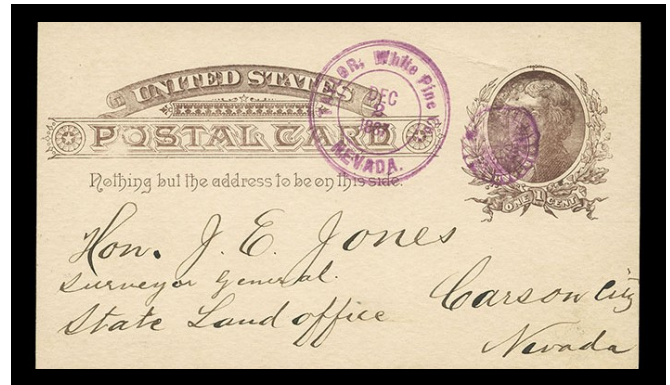 UNITED STATES
POSTAL CARD
Nothing but the address to be on this side.
TAYLOR, White Pine Co.
DEC
2
NEVADA.
ONE 1 CENT
Hon. J. E. Jones
Surveyor General.
State Land office
Carson City
Nevada